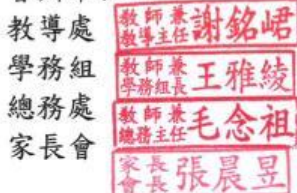 教導處 教師兼教導主任 謝銘崌
學務組 教師兼學務組長 王雅綾
總務處 教師兼總務主任 毛念祖
家長會 家長會長 張晨昱